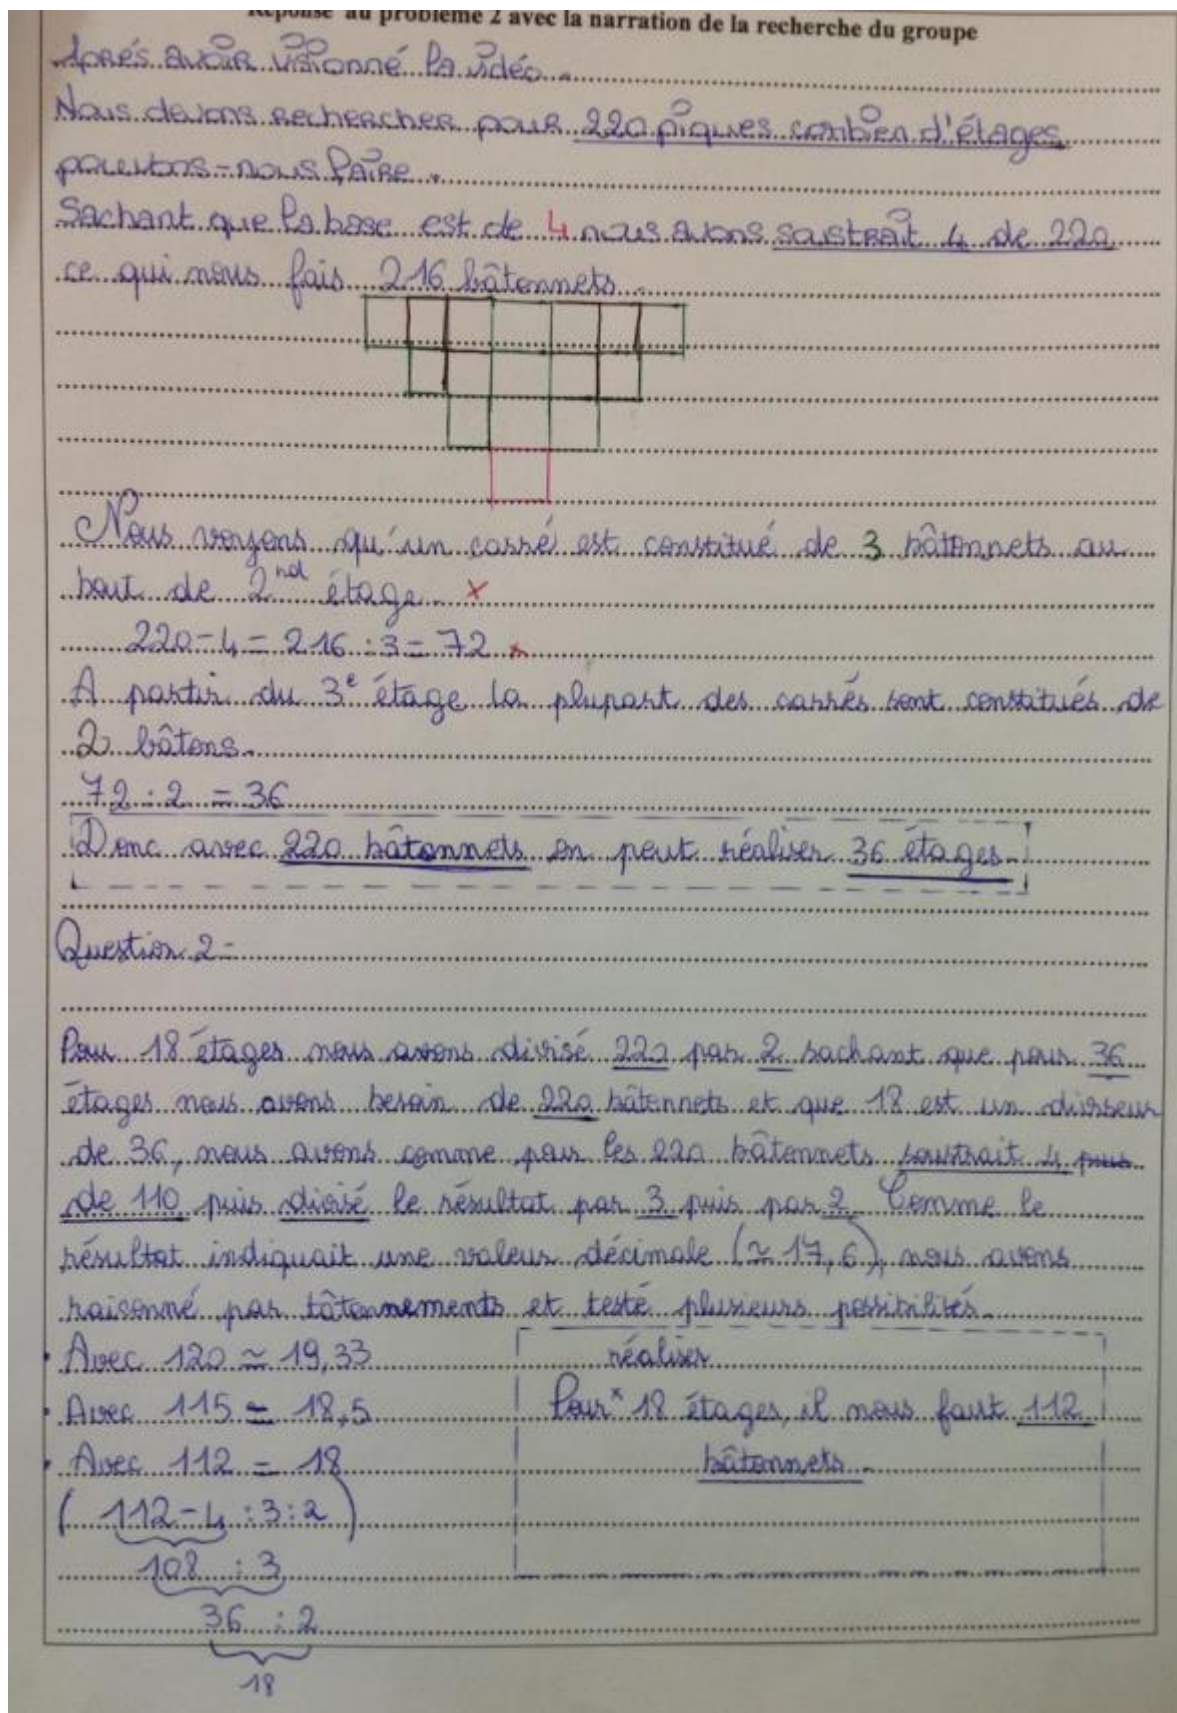 Réponse au problème 2 avec la narration de la recherche du groupe
Après avoir visionné la vidéo.
Nous devons rechercher pour 220 piques combien d'étages
pouvons-nous faire.
Sachant que la base est de 4 nous avons soustrait 4 de 220
ce qui nous fais 216 bâtonnets.
Nous voyons qu'un carré est constitué de 3 bâtonnets au
bout de 2nd étage. x
220-4=216:3=72 x
A partir du 3e étage la plupart des carrés sont constitués de
2 bâtons.
72:2 = 36
Donc avec 220 bâtonnets on peut réaliser 36 étages.
Question 2-
Pour 18 étages nous avons divisé 220 par 2 sachant que pour 36
étages nous avons besoin de 220 bâtonnets et que 18 est un diviseur
de 36, nous avons comme pour les 220 bâtonnets soustrait 4 puis
de 110 puis divisé le résultat par 3 puis par 2. Comme le
résultat indiquait une valeur décimale (≃ 17,6), nous avons
raisonné par tâtonnements et testé plusieurs possibilités.
• Avec 120 ≃ 19,33
réaliser
• Avec 115 = 18,5
Pour x 18 étages, il nous faut 112
• Avec 112 = 18
bâtonnets.
( 112-4 :3:2 )
108 :3
36 :2
18